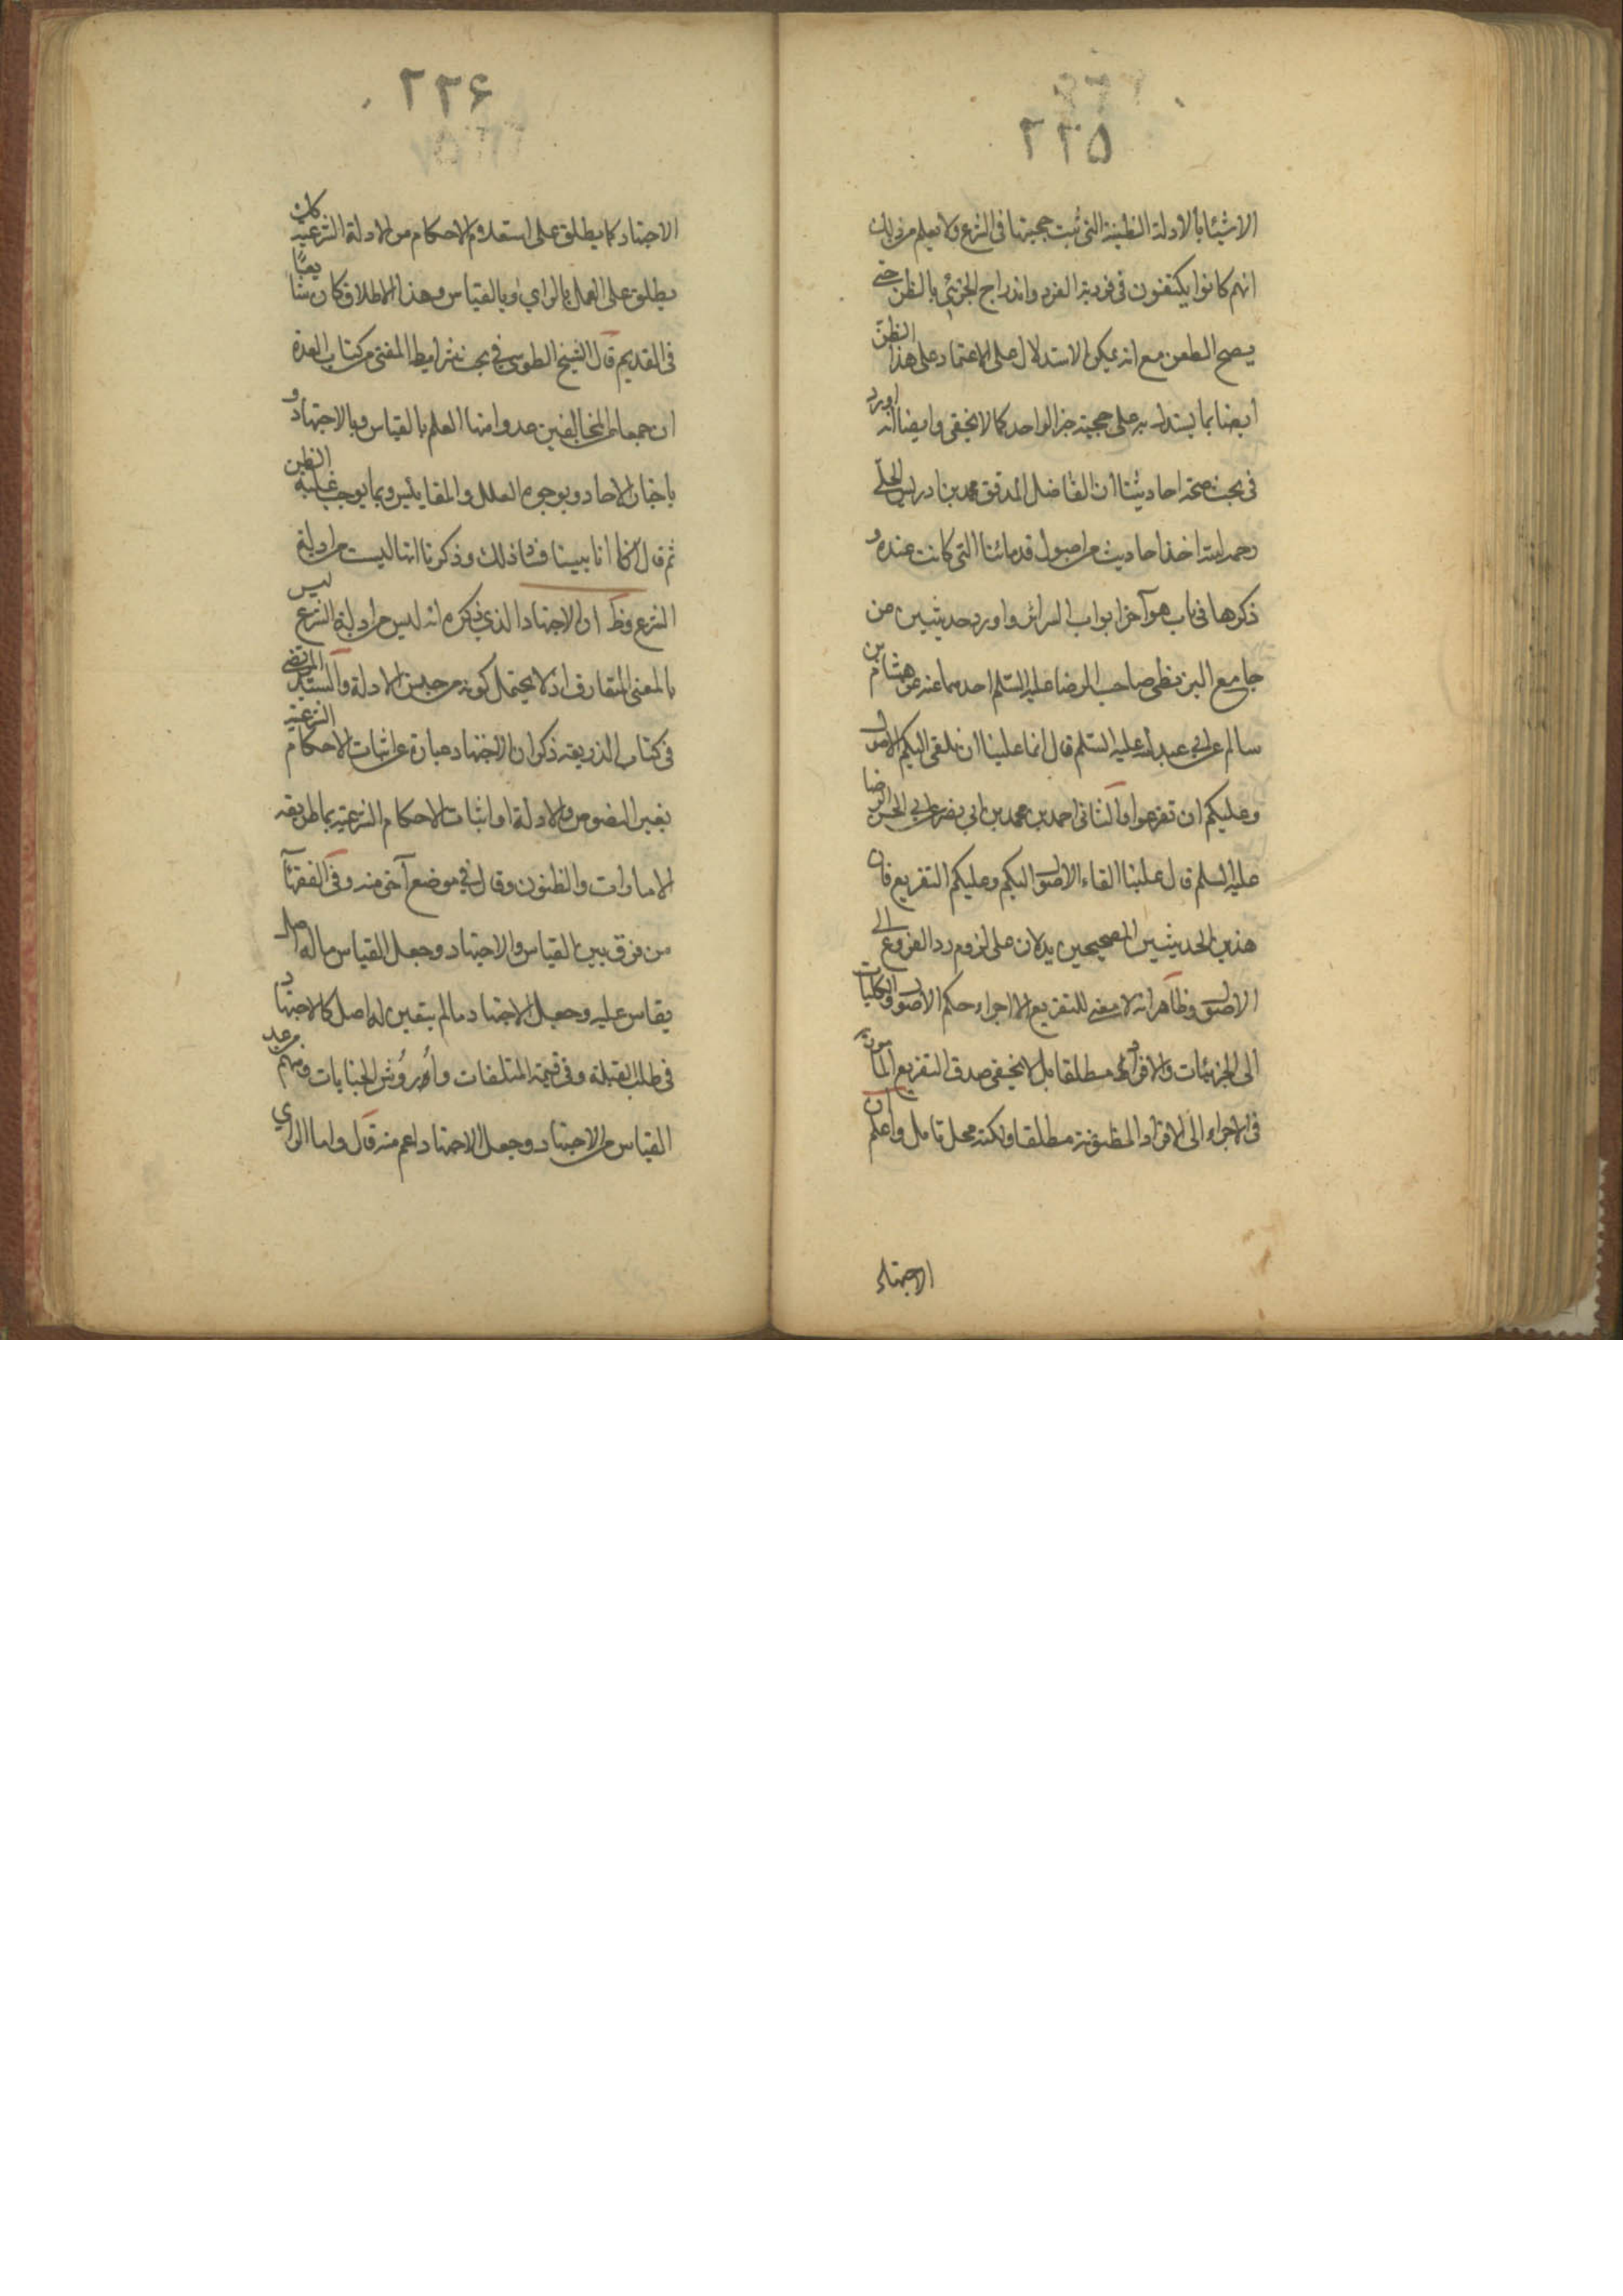 ٢٢۵
الاشياء بالادلة الظنية التي ثبت حجيتها في الشرع ولا يعلم من ذلك
انهم كانوا يكتفون في فردية الفرد واندراج الجزئي بالظن حتى
يصح الطعن مع انه يمكن الاستدلال على الاعتماد على هذا الظن
ايضا بما يستدل به على حجية خبر الواحد كما لا يخفى وايضا انه اورد
في بحث صحة احاديثنا ان الفاضل المدقق محمد بن ادريس الحلّي
رحمه الله اخذ احاديث من اصول قدمائنا التي كانت عنده و
ذكرها في باب هو آخر ابواب السرائر واورد حديثين من
جامع البزنطي صاحب الرضا عليه السّلم احدهما عنه عن هشام بن
سالم عن ابي عبد الله عليه السّلم قال انما علينا ان نلقي اليكم الاصول
وعليكم ان تفرعوا والثاني احمد بن محمد بن ابي نصر عن ابي الحسن الرضا
عليه السلم قال علينا القاء الاصول اليكم وعليكم التفريع فان
هذين الحديثين الصحيحين يدلان على لزوم رد الفروع الى
الاصول وظاهر انه لا معنى للتفريع الا اجراء حكم الاصول والكليات
الى الجزئيات والافراد مطلقا بل لا يخفى صدق التفريع المامور به
في الاجراء الى الافراد المظنونة مطلقا ولكنه محل تامل واعلم ان
الاجتهاد
٢٢۶
الاجتهاد كما يطلق على استعلام الاحكام من الادلة الشرعية كان
يطلق على العمل بالراي وبالقياس وهذا الاطلاق كان شايعا
في القديم قال الشيخ الطوسي في بحث شرايط المفتي من كتاب العدة
ان جمعا من المخالفين عدوا منها العلم بالقياس وبالاجتهاد و
باخبار الاحاد وبوجوه العلل والمقاييس وبما يوجب غلبة الظن
ثم قال انا بينا فساد ذلك وذكرنا انها ليست من ادلة
الشرع وظ ان الاجتهاد الذي ذكره انه ليس من ادلة الشرع ليس
بالمعنى المتعارف اذ لا يحتمل كونه من جنس الادلة والسيد المرتضى
في كتاب الذريعة ذكر ان الاجتهاد عبارة عن اثبات الاحكام الشرعية
بغير النصوص والادلة او اثبات الاحكام الشرعية بما طريقه
الامارات والظنون وقال في موضع آخر منه وفي الفقهآ
من فرق بين القياس والاجتهاد وجعل القياس ما له اصل
يقاس عليه وجعل الاجتهاد ما لم يتعين له اصل كالاجتهاد
في طلب القبلة وفي قيمة المتلفات وأُروُش الجنايات ومنهم من عد
القياس من الاجتهاد وجعل الاجتهاد اعم منه قال واما الراي